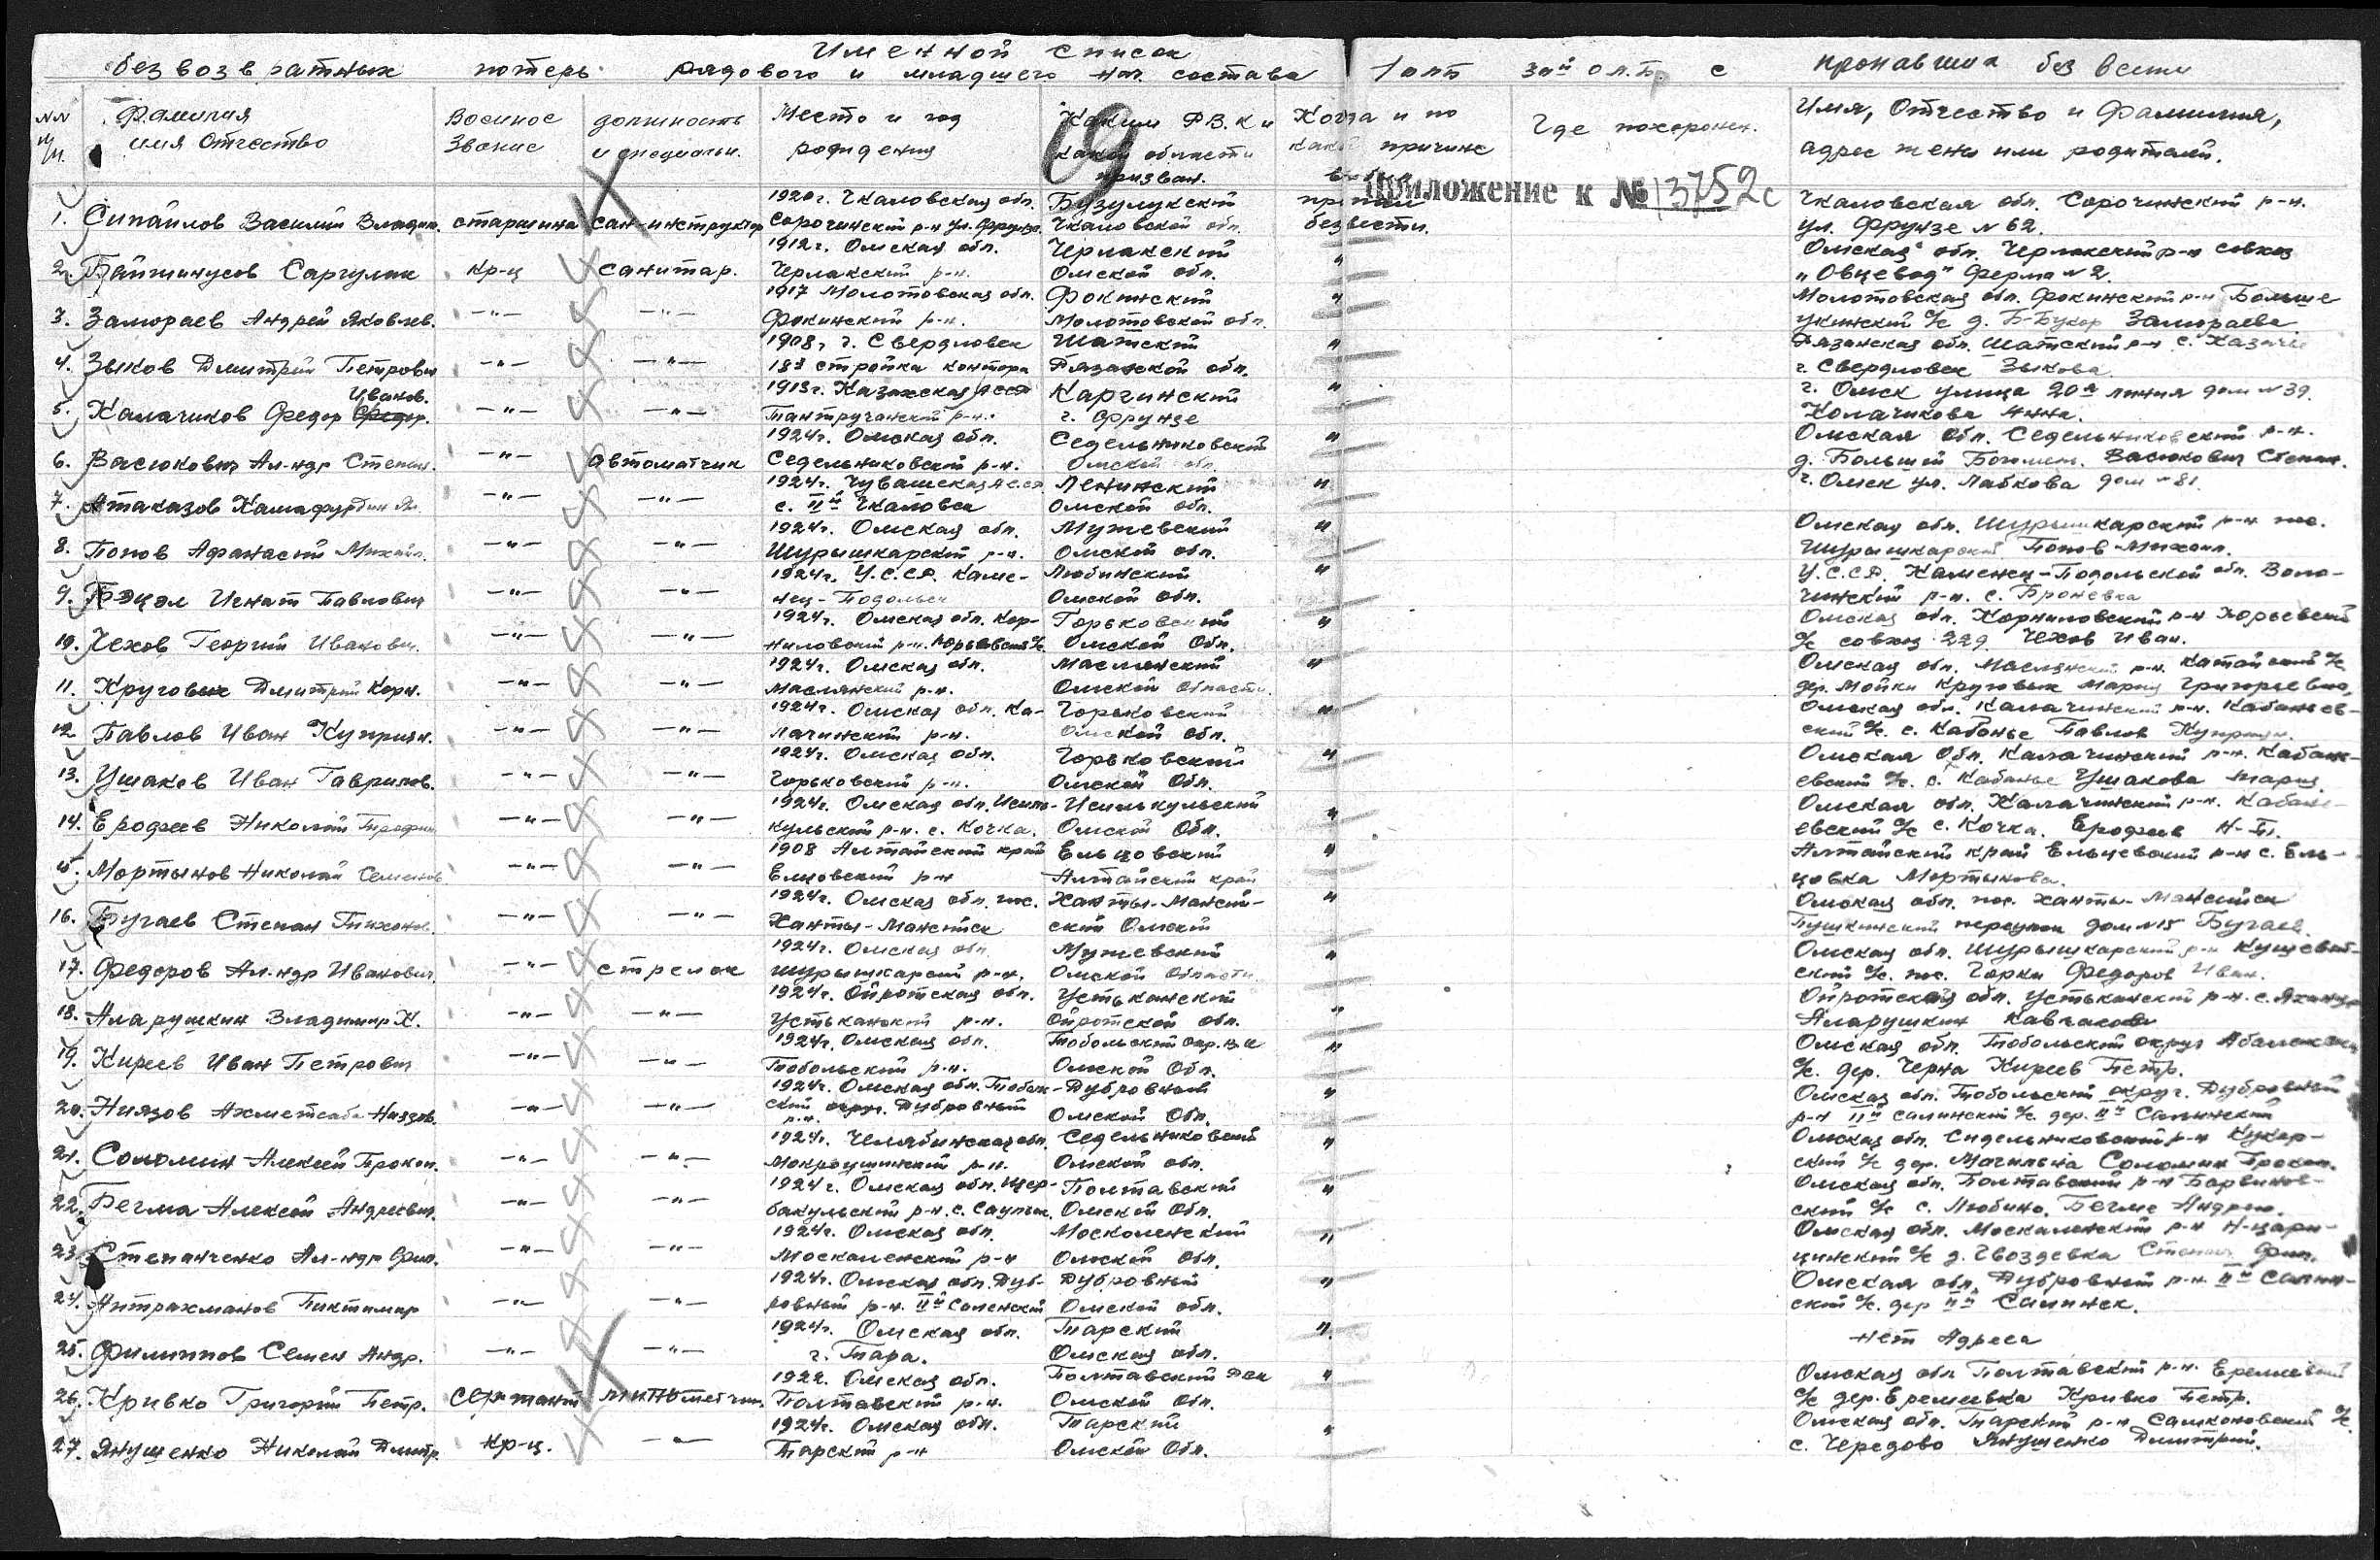 Именной список
безвозвратных потерь рядового и младшего нач. состава 1 олб 3ий о.л.бр с пропавших без вести
NN п/п. Фамилия имя Отчество
Военное Звание
должность и специальн.
Место и год рождения
Каким Р.В.К и какой области призван.
Когда и по какой причине выбыл
Где похоронен.
Имя, Отчество и Фамилия, адрес жены или родителей.
19
Приложение к № 13752с
1. Сипайлов Василий Владим. старшина сан-инструктор 1920г. Чкаловская обл. Сорочинский р-н ул. Фрунзе. Бузулукский Чкаловской обл. пропал без вести. Чкаловская обл. Сорочинский р-н. ул. Фрунзе N 62.
2. Байжинусов Саргулак кр-ц санитар. 1912г. Омская обл. Черлакский р-н. Черлакский Омской обл. " Омская обл. Черлакский р-н совхоз „Овцевод" Ферма N 2.
3. Замораев Андрей Яковлев. -"- -"- 1917 Молотовская обл. Фокинский р-н. Фокинский Молотовской обл. " Молотовская обл. Фокинский р-н Больше укинский с/с д. Б-Букор Замораева.
4. Зыков Дмитрий Петрович -"- -"- 1908, г. Свердловск 18й стройка контора Шатский Рязанской обл. " Рязанская обл. Шатский р-н с. Казачье г. Свердловск Зыкова
5. Калачиков Федор Иванов. -"- -"- 1913г. Казахская АССР р-н. Каргинский г. Фрунзе " г. Омск улица 20я линия дом N 39. Колачикова Анна.
6. Васюкович Ал-ндр Степан. -"- автоматчик 1924г. Омская обл. Седельниковский р-н. Седельниковский Омской обл. " Омская обл. Седельниковский р-н. д. Большой Васюкович Степан.
7. Атаказов -"- -"- 1924г. Чувашская АССР с. IIй Чкаловск Ленинский Омской обл. " г. Омск ул. Лабкова дом N 81.
8. Попов Афанасий Михайл. -"- -"- 1924г. Омская обл. Шурышкарский р-н. Мужевский Омской обл. " Омская обл. Шурышкарский р-н пос. Шурышкарский Попов Михаил.
9. Бэцэл Игнат Павлович -"- -"- 1924г. У.С.С.Р. Каменец-Подольск Любинский Омской обл. " У.С.С.Р. Каменец-Подольской обл. Волочинский р-н. с. Броневка
10. Чехов Георгий Иванович. -"- -"- 1924г. Омская обл. Корниловский р-н. Юрьевский с/с Горьковский Омской Обл. " Омская обл. Корниловский р-н Юрьевский с/с совхоз 229 Чехов Иван.
11. Круговых Дмитрий Корн. -"- -"- 1924г. Омская обл. Маслянский р-н. Маслянский Омской Области. " Омская обл. Маслянский р-н. Катайский с/с дер. Мойки Круговых Мария Григорьевна,
12. Павлов Иван Куприян. -"- -"- 1924г. Омская обл. Калачинский р-н. Горьковский Омской обл. " Омская обл. Калачинский р-н. Кабаньевский с/с. с. Кабанье Павлов Куприян.
13. Ушаков Иван Гаврилов. -"- -"- 1924г. Омская обл. Горьковский р-н. Горьковский Омской Обл. " Омская Обл. Калачинский р-н. Кабаньевский с/с. с. Кабанье Ушакова Мария
14. Ерофеев Николай Трофим -"- -"- 1924г. Омская обл. Исилькульский р-н. с. Кочка. Исилькульский Омской Обл. " Омская обл. Калачинский р-н. Кабаньевский с/с с. Кочка. Ерофеев Н-Т.
15. Мортынов Николай Семенов -"- -"- 1908 Алтайский край Елцовский р-н Ельцовский Алтайский край " Алтайский край Ельцевский р-н с. Ельцовка Мортынова.
16. Бугаев Степан Тихонов. -"- -"- 1924г. Омская обл. пос. Ханты-Мансийск Ханты-Мансийский Омской " Омская обл. пос. Ханты-Мансийск Пушкинский переулок дом N15 Бугаев.
17. Федоров Ал-ндр Иванович. -"- стрелок 1924г. Омская обл. Шурышкарский р-н. Мужевский Омской Области. " Омская обл. Шурышкарский р-н Кушеватский с/с. пос. Горки Федоров Иван.
18. Аларушкин Владимир К. -"- -"- 1924г. Ойротская обл. Устьканский р-н. Устьканский Ойротской обл. " Ойротская обл. Устьканский р-н. с. Аларушкин
19. Киреев Иван Петрович -"- -"- 1924г. Омская обл. Тобольский р-н. Тобольский окр. в.к Омской Обл. " Омская обл. Тобольский округ с/с. дер. Черна Киреев Петр.
20. Ниязов Ниязов. -"- -"- 1924г. Омская обл. Тобольский округ. Дубровный р-н. Дубровный Омской Обл. " Омская обл. Тобольский округ. Дубровный р-н IIй салинский с/с. дер. IIй Салинский
21. Соломин Алексей Прокоп. -"- -"- 1924г. Челябинская обл. Мокроушинский р-н. Седельниковский Омской обл. " Омская обл. Сидельниковский р-н Кукарский с/с дер. Могильна Соломин Прокоп.
22. Бегма Алексей Андреевич. -"- -"- 1924г. Омская обл. Щербакульский р-н. с. Полтавский Омской Обл. " Омская обл. Полтавский р-н с/с с. Любино. Бегма Андрею.
23. Степанченко Ал-ндр Фил. -"- -"- 1924г. Омская обл. Москаленский р-н Москаленский Омской обл. " Омская обл. Москаленский р-н Н-царицинский с/с д. Гвоздевка Степанч. Фил.
24. Антрахманов Тиктимир -"- -"- 1924г. Омская обл. Дубровный р-н. IIй Салинский Дубровный Омской обл. " Омская обл. Дубровный р-н. IIй Салинский с/с. дер IIй Салинск.
25. Филиппов Семен Андр. -"- -"- 1924г. Омская обл. г. Тара. Тарский Омская обл. " нет Адреса
26. Кривко Григорий Петр. Сержант минометчик 1922. Омская обл. Полтавский р-н. Полтавский РВК Омской Обл. " Омская обл Полтавский р-н. Еремеевский с/с дер. Еремеевка Кривко Петр.
27. Янушенко Николай Дмитр. Кр-ц. -"- 1924г. Омская обл. Тарский р-н Тарский Омской Обл. " Омская обл. Тарский р-н с/с. с. Чередово Янушенко Дмитрий.